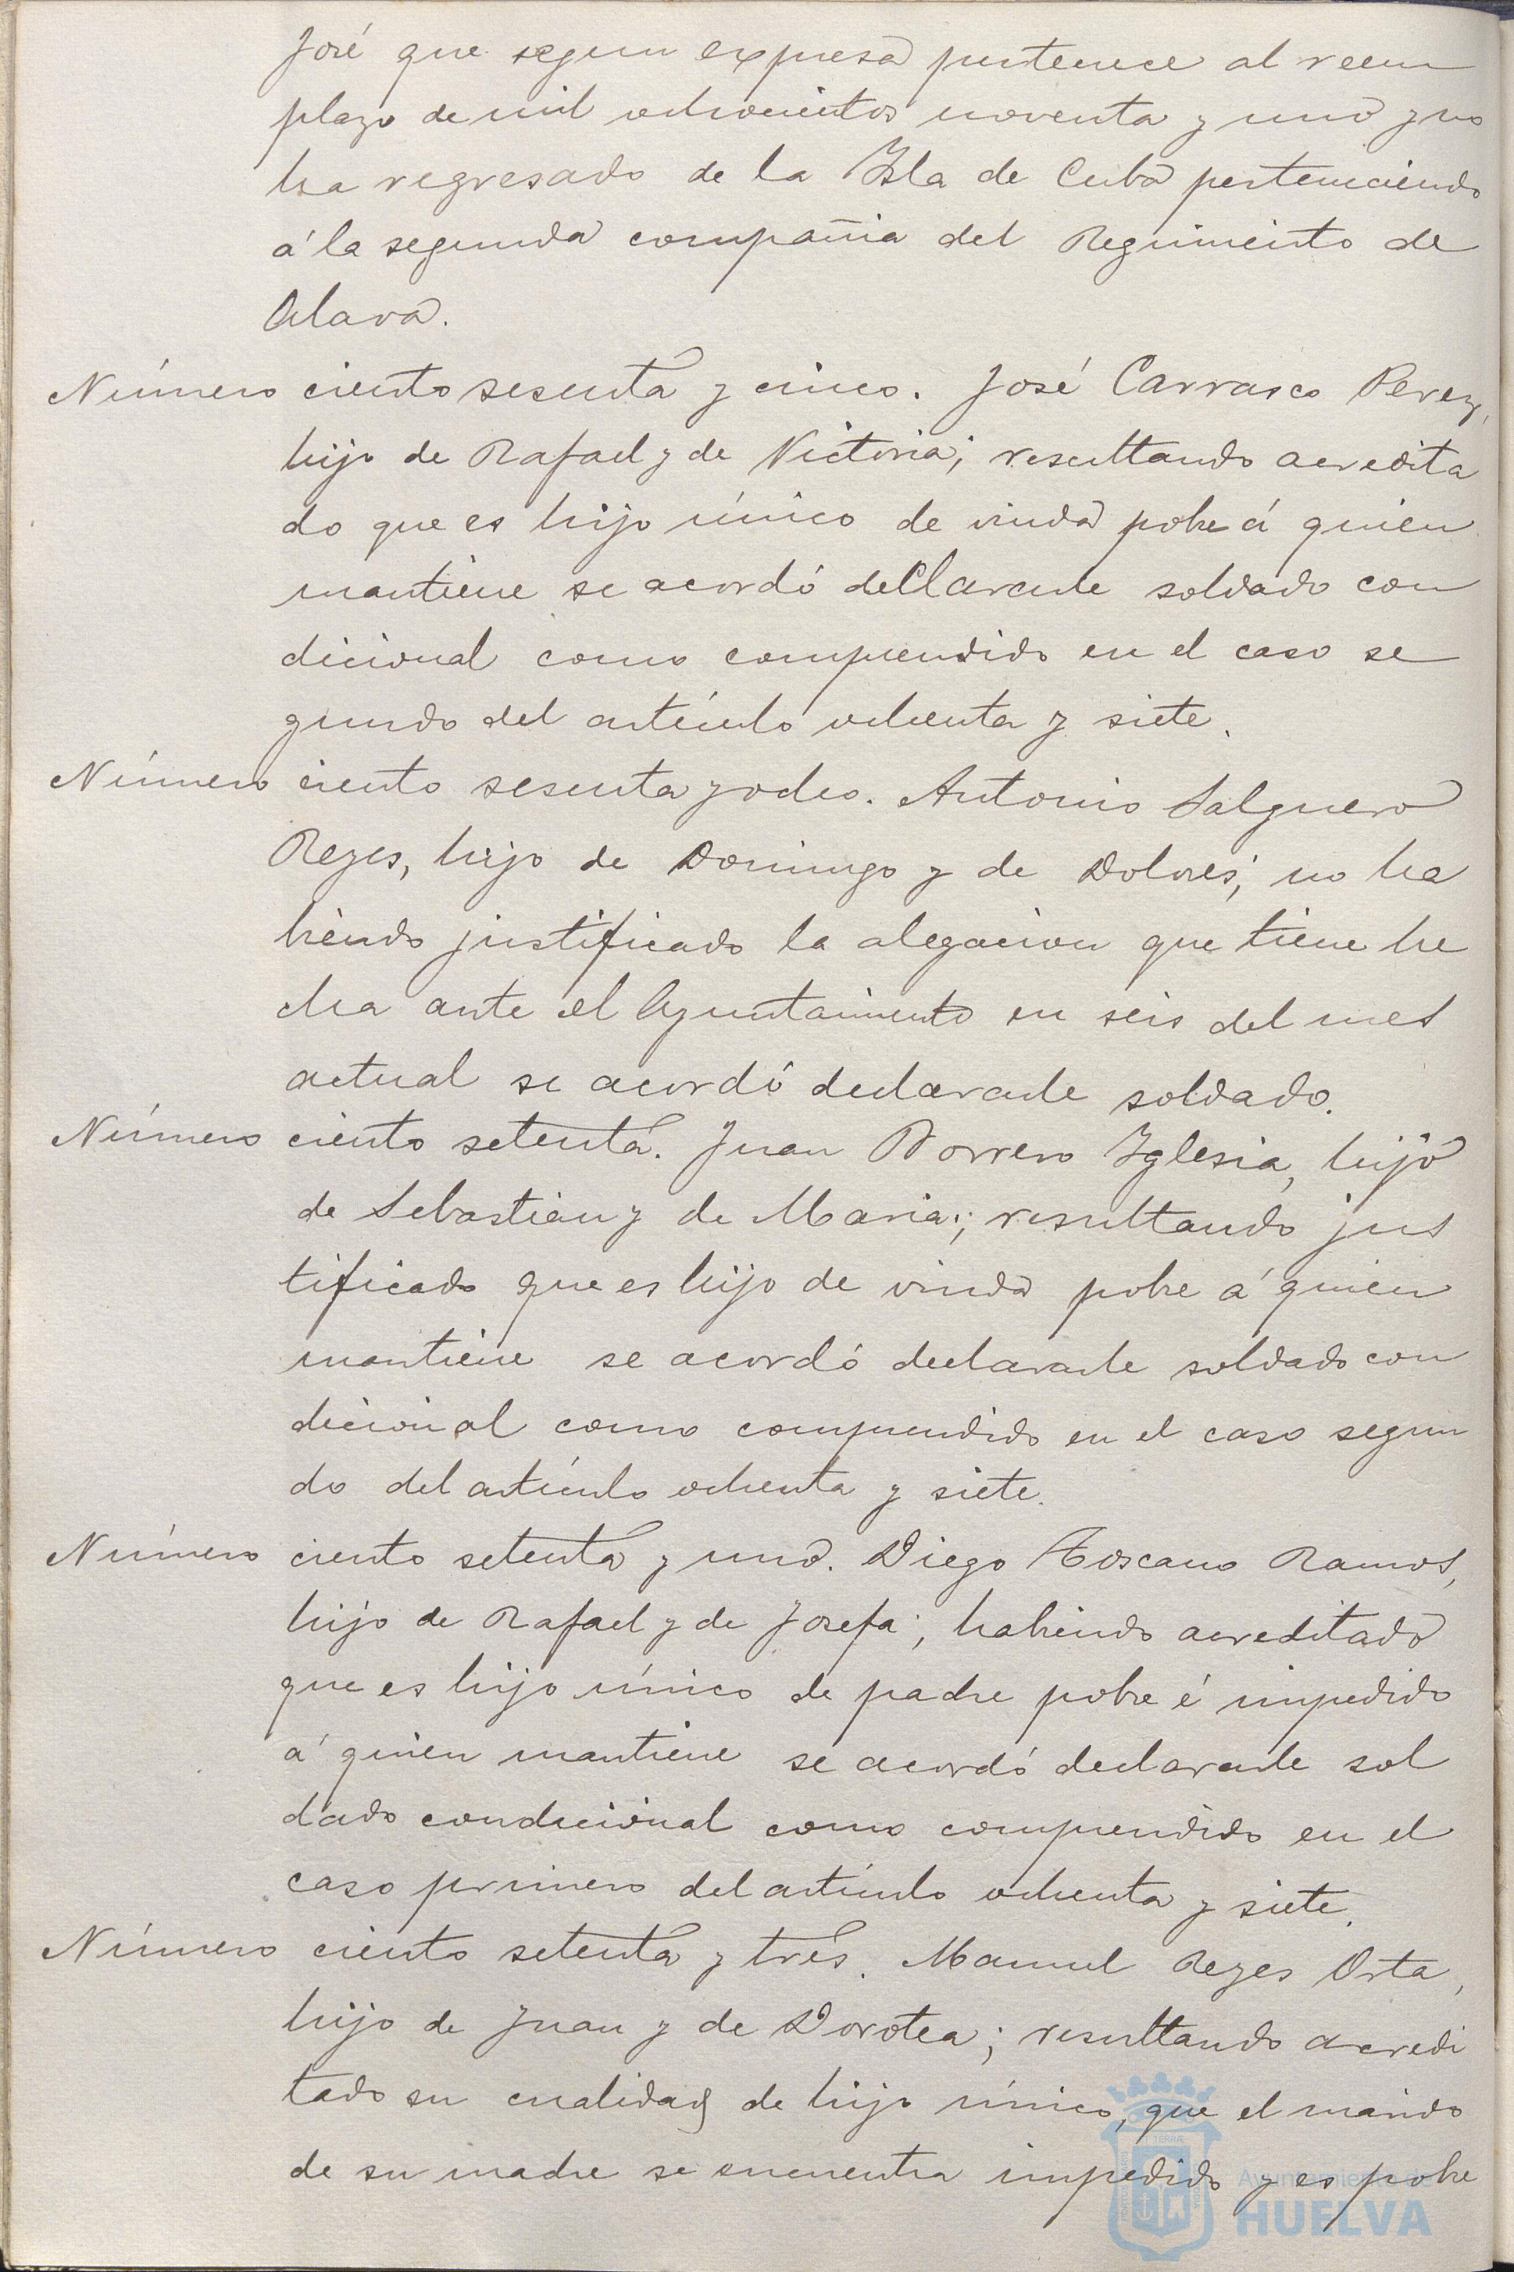 José que segun expresa pertenece al reem
plazo de mil ochocientos noventa y uno y no
ha regresado de la Ysla de Cuba perteneciendo
á la segunda compañia del Regimiento de
Alava.
Número ciento sesenta y cinco. José Carrasco Perez,
hijo de Rafael y de Victoria; resultando acredita
do que es hijo único de viuda pobre á quien
mantiene se acordó declararle soldado con
dicional como comprendido en el caso se
gundo del artículo ochenta y siete.
Número ciento sesenta y ocho. Antonio Salguero
Reyes, hijo de Domingo y de Dolores; no ha
biendo justificado la alegacion que tiene he
cha ante el Ayuntamiento en seis del mes
actual se acordó declararle soldado.
Número ciento setenta. Juan Borrero Yglesia, hijo
de Sebastian y de Maria; resultando jus
tificado que es hijo de viuda pobre á quien
mantiene se acordó declararle soldado con
dicional como comprendido en el caso segun
do del artículo ochenta y siete.
Número ciento setenta y uno. Diego Toscano Ramos,
hijo de Rafael y de Josefa; habiendo acreditado
que es hijo único de padre pobre é impedido
á quien mantiene se acordó declararle sol
dado condicional como comprendido en el
caso primero del artículo ochenta y siete.
Número ciento setenta y tres. Manuel Reyes Orta,
hijo de Juan y de Dorotea; resultando acredi
tado su cualidad de hijo único, que el marido
de su madre se encuentra impedido y es pobre
Ayuntamiento de
HUELVA